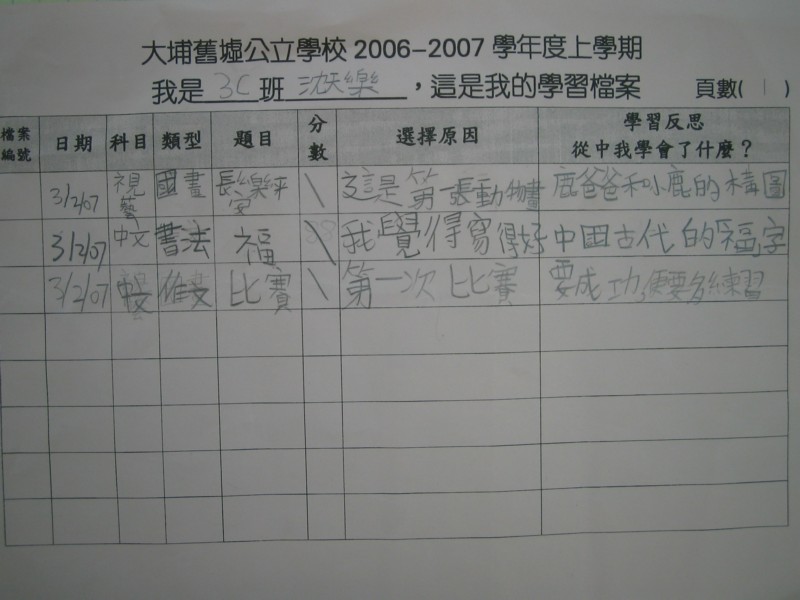 大埔舊墟公立學校 2006-2007 學年度上學期
我是 3C 班 沈天樂 ，這是我的學習檔案 頁數( 1 )
檔案編號 日期 科目 類型 題目 分數 選擇原因 學習反思 從中我學會了什麼？
3/2/07 視藝 國畫 長樂平安 \ 這是第一張動物畫 鹿爸爸和小鹿的構圖
3/2/07 中文 書法 福 \ 我覺得寫得好 中国古代的福字
3/2/07 中文 作文 比賽 \ 第一次比賽 要成功,便要多練習